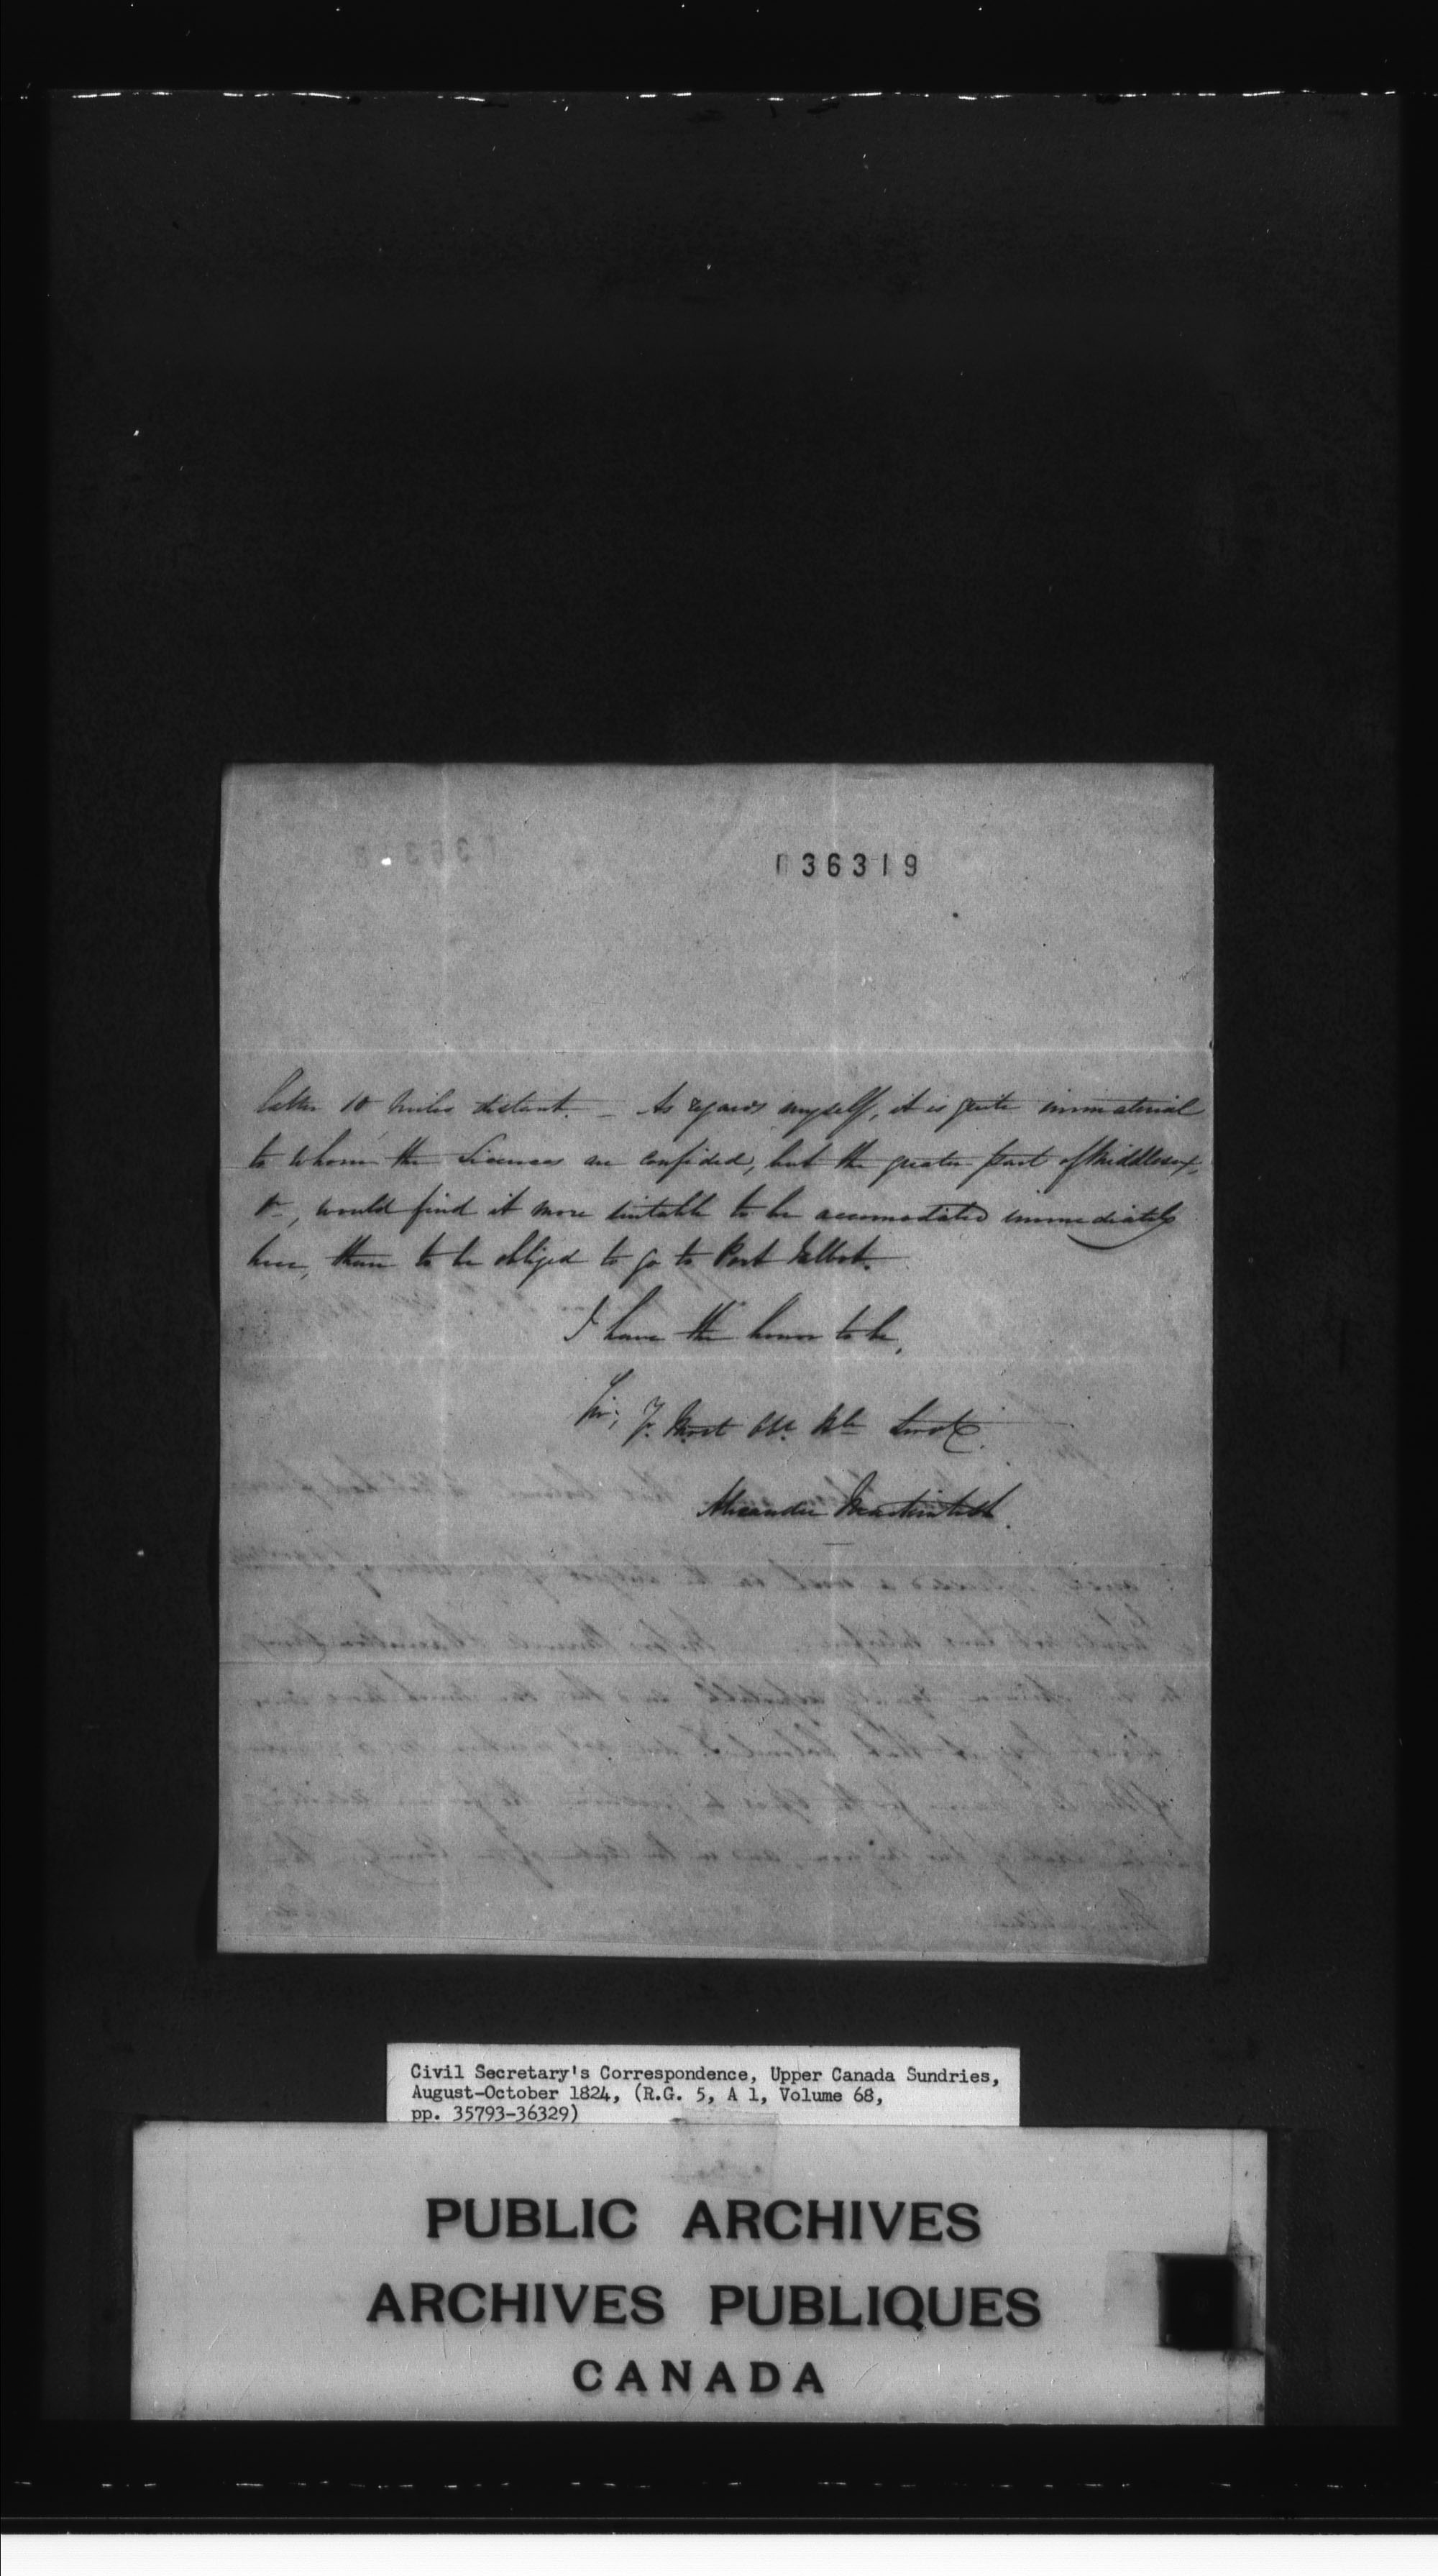 036319
latter 10 miles distant. _ As regards myself, it is quite immaterial
to whom the Licences are confided, but the greater part of Middlesex,
&c, would find it more suitable to be accomodated immediately
here, than to be obliged to go to Port Talbot.
I have the honor to be,
Sir, Yr. Most Obt. Hble Servt.
Alexander Mackintosh.
Civil Secretary's Correspondence, Upper Canada Sundries,
August-October 1824, (R.G. 5, A 1, Volume 68,
pp. 35793-36329)
PUBLIC ARCHIVES
ARCHIVES PUBLIQUES
CANADA